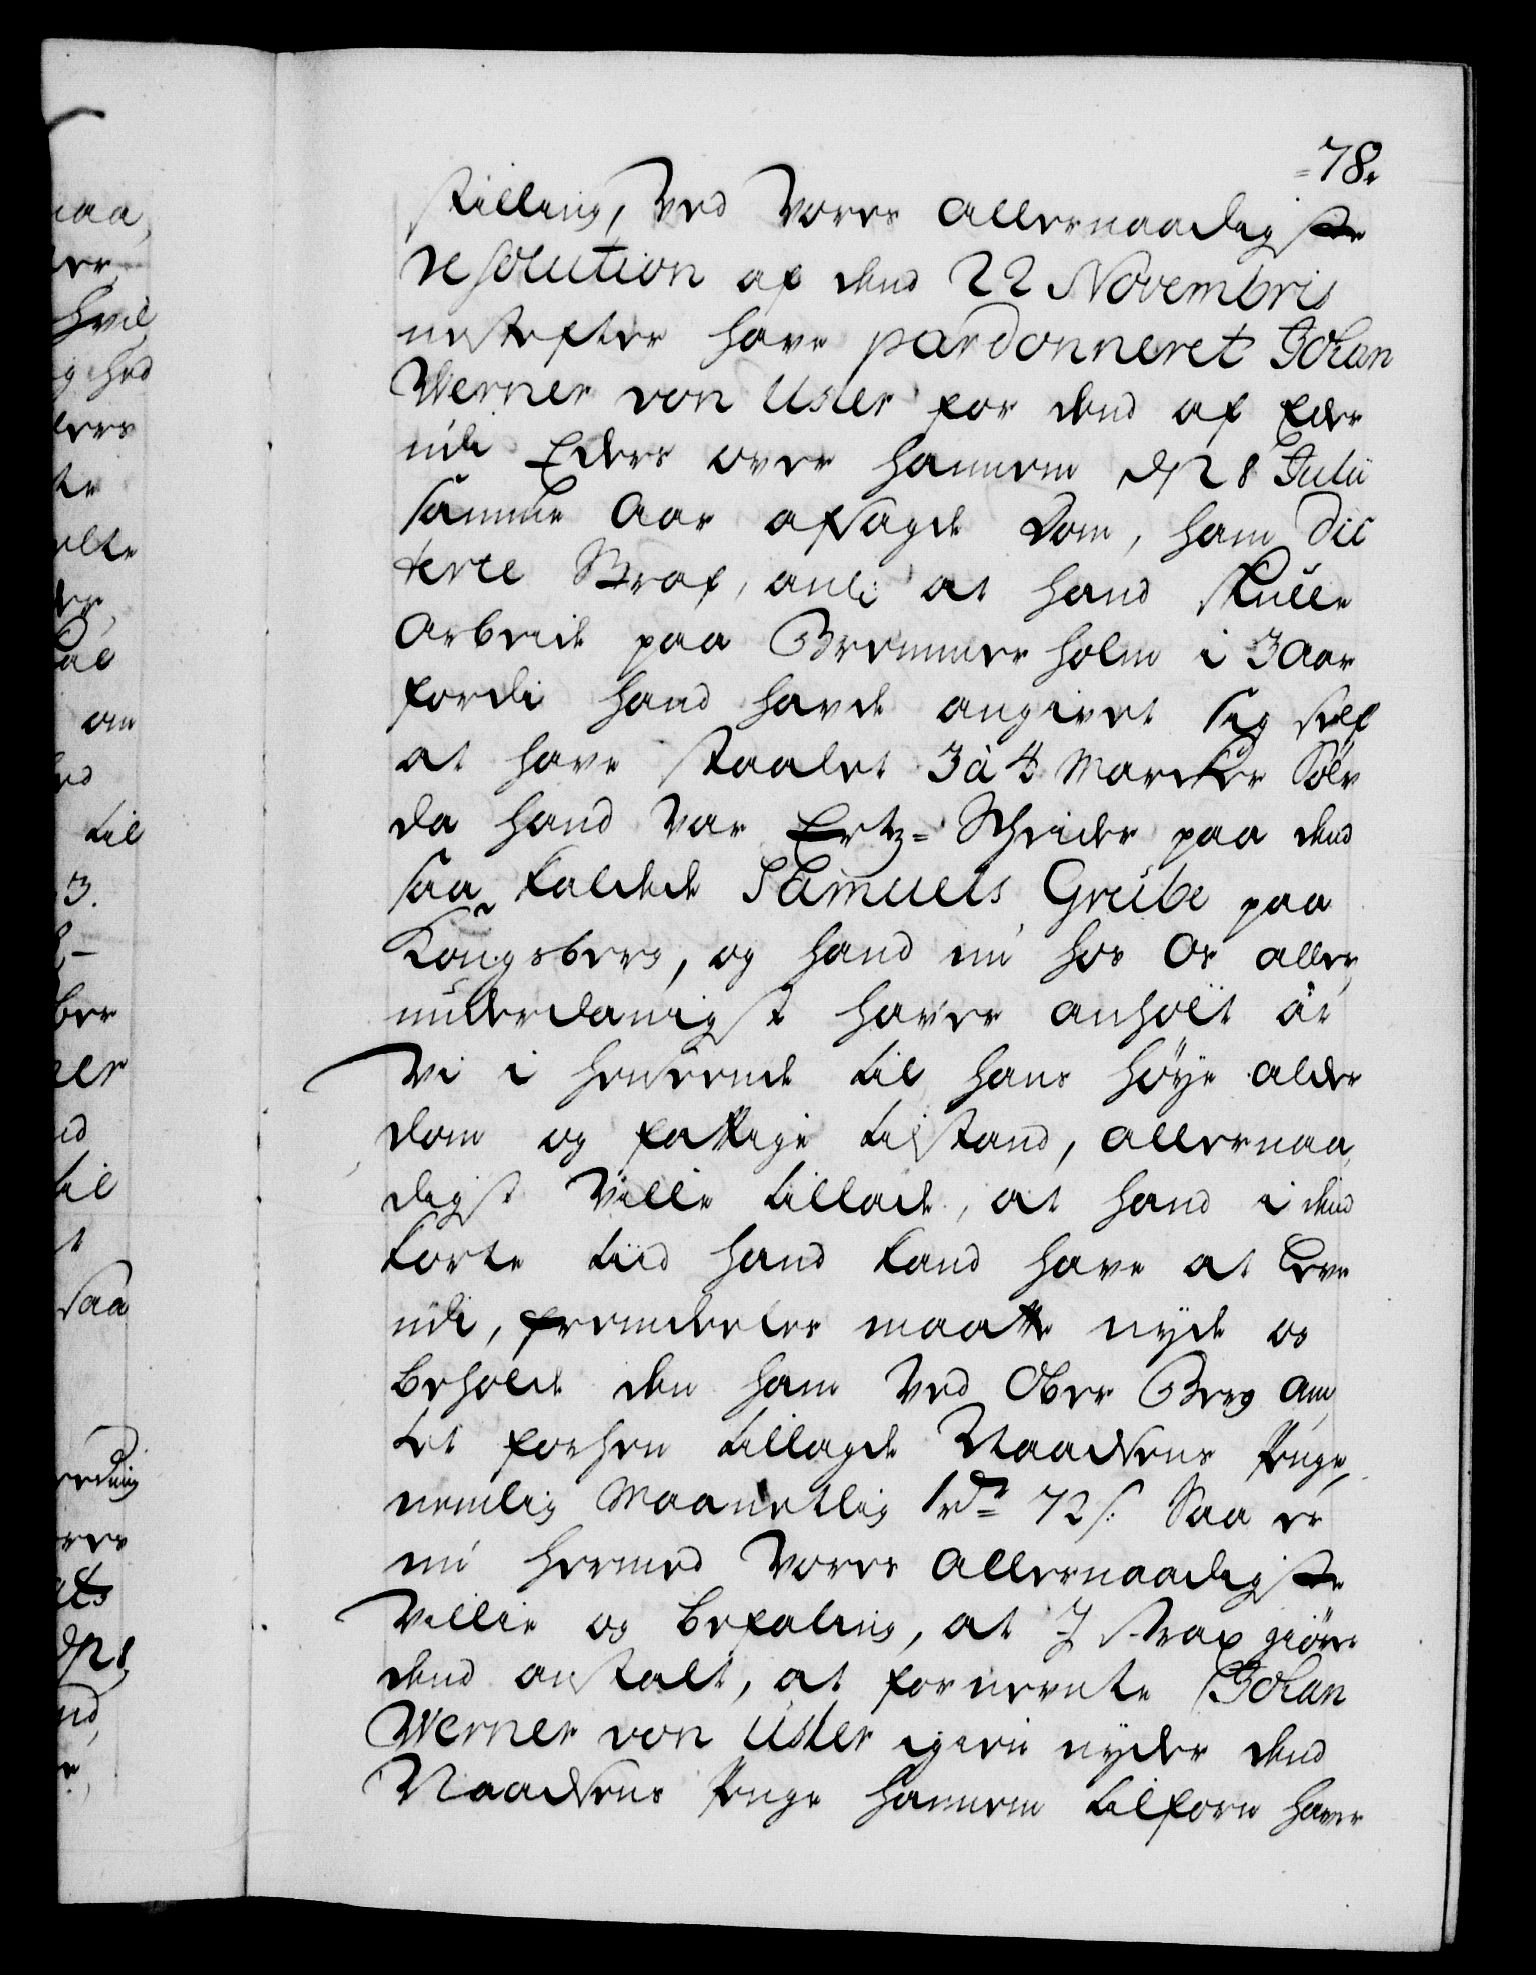 78.
stilling, Ved Vores Allernaadigste
resolution af dend 22 Novembris
nestefter have pardonneret Johan
Werner von Usler for dend af Eder
udi Eders over hannem d. 28 Julii
samme Aar afsagde Dom, ham dic
terte Straf, at hand skulle
Arbeide paa Bremmerholm i 3 Aar
fordi hand havde angivet sig self
at have staalet 3 à 4 Marker Sölv
da hand var Ertz-Scheider paa dend
saa kaldede Samuels Grube paa
Kongsberg, og hand nu hos Os aller
underdanigst haver anholt at
Vi i henseende til hans höye alder
dom og fattige tilstand, allernaa
digst Ville tillade, at hand i dend
korte tiid hand kand have at leve
udi, fremdeeles maatte nyde og
beholde den ham Ved Ober Berg Am
tet forhen tillagde Naadsens Penge,
nemlig Maanetlig 1 rd 72 s: Saa er
nu hermed Vores Allernaadigste
Villie og befaling, at I strax giöre
dend anstalt, at forneefnte Johan
Werner von Usler igien nyder dend
Naadsens Penge hannem tilforn haver